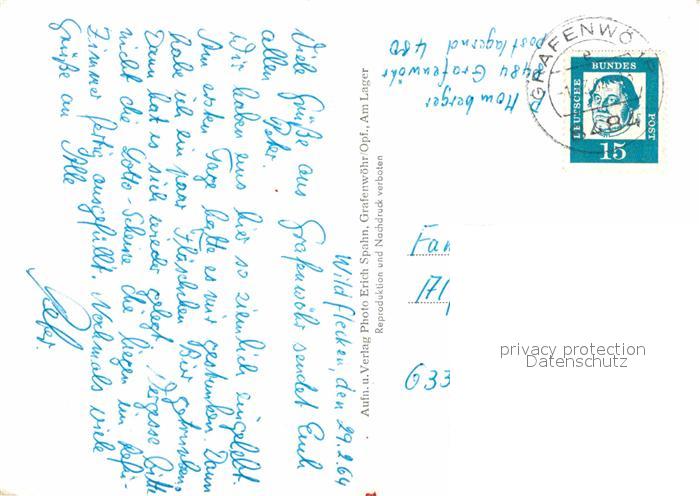 Wildflecken, den 29.2.64
Viele Grüße aus Grafenwöhr sendet Euch
allen Peter.
Wir haben uns hier so ziemlich eingelebt.
Am ersten Tage hatte es mir gestunken. Dann
habe ich ein paar Fläschchen Bier getrunken
Dann hat es sich wieder gelegt. Vergesse bitte
nicht die Lotto-Scheine die liegen im
Zimmer fertig ausgefüllt. Nochmals viele
Grüße an Alle
Peter.
Aufn. u. Verlag Photo Erich Spahn, Grafenwöhr/Opf., Am Lager
Reproduktion und Nachdruck verboten
Homberger
8484 Grafenwöhr
postlagernd 480
GRAFENWÖ
8484
DEUTSCHE BUNDES POST
15
Fan
633
privacy protection
Datenschutz